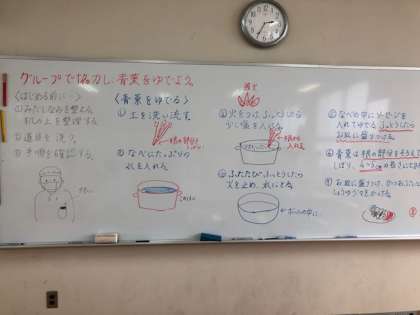 グループで協力し、青菜をゆでよう。
〈はじめる前に…〉
①みだしなみを整える。
机の上を整理する。
②道具を洗う。
③手順を確認する。
〈青菜をゆでる〉
①土を洗い流す。
②なべにたっぷりの
水を入れる。
③火をつけ、ふっとうしたら
少し塩を入れる。
入れる。
④ふたたびふっとうしたら
火を止め、水にとる。
⑤なべの中に
入れてゆでる
ふっとうしたら
お皿に盛りつける
⑥青菜は根の部分をそろえて
しぼり、4〜5cmの長さに
⑦お皿に盛りつけ、かつおぶし
しょうゆ
をかける。